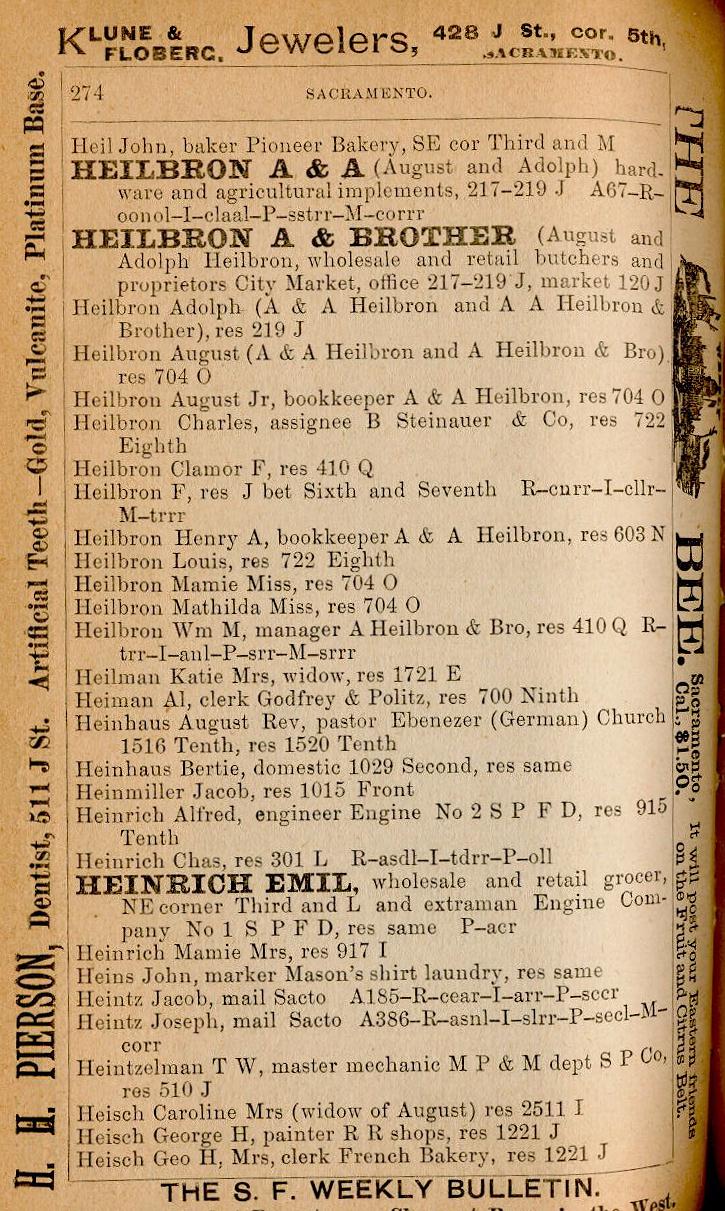 KLUNE & FLOBERG, Jewelers, 428 J St., cor. 5th, SACRAMENTO.
274 SACRAMENTO.
Heil John, baker Pioneer Bakery, SE cor Third and M
HEILBRON A & A (August and Adolph) hard-
ware and agricultural implements, 217–219 J A67–R–
oonol–I–claal–P–sstrr–M–corrr
HEILBRON A & BROTHER (August and
Adolph Heilbron, wholesale and retail butchers and
proprietors City Market, office 217–219 J, market 120 J
Heilbron Adolph (A & A Heilbron and A A Heilbron &
Brother), res 219 J
Heilbron August (A & A Heilbron and A Heilbron & Bro)
res 704 O
Heilbron August Jr, bookkeeper A & A Heilbron, res 704 O
Heilbron Charles, assignee B Steinauer & Co, res 722
Eighth
Heilbron Clamor F, res 410 Q
Heilbron F, res J bet Sixth and Seventh R–curr–I–cllr–
M–trrr
Heilbron Henry A, bookkeeper A & A Heilbron, res 603 N
Heilbron Louis, res 722 Eighth
Heilbron Mamie Miss, res 704 O
Heilbron Mathilda Miss, res 704 O
Heilbron Wm M, manager A Heilbron & Bro, res 410 Q R–
trr–I–anl–P–srr–M–srrr
Heilman Katie Mrs, widow, res 1721 E
Heiman Al, clerk Godfrey & Politz, res 700 Ninth
Heinhaus August Rev, pastor Ebenezer (German) Church
1516 Tenth, res 1520 Tenth
Heinhaus Bertie, domestic 1029 Second, res same
Heinmiller Jacob, res 1015 Front
Heinrich Alfred, engineer Engine No 2 S P F D, res 915
Tenth
Heinrich Chas, res 301 L R–asdl–I–tdrr–P–oll
HEINRICH EMIL, wholesale and retail grocer,
NE corner Third and L and extraman Engine Com-
pany No 1 S P F D, res same P–acr
Heinrich Mamie Mrs, res 917 I
Heins John, marker Mason's shirt laundry, res same
Heintz Jacob, mail Sacto A185–R–cear–I–arr–P–sccr
Heintz Joseph, mail Sacto A386–R–asnl–I–slrr–P–secl–M–
corr
Heintzelman T W, master mechanic M P & M dept S P Co,
res 510 J
Heisch Caroline Mrs (widow of August) res 2511 I
Heisch George H, painter R R shops, res 1221 J
Heisch Geo H, Mrs, clerk French Bakery, res 1221 J
THE S. F. WEEKLY BULLETIN.
in the West.
H. H. PIERSON, Dentist, 511 J St. Artificial Teeth—Gold, Vulcanite, Platinum Base.
THE BEE.
Sacramento, It will post your Eastern friends
Cal., $1.50. on the Fruit and Citrus Belt.